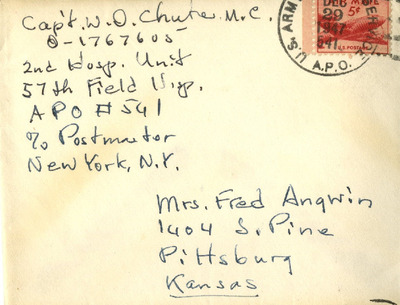 Capt. W. O. Chute M.C.
O-1767605
2nd Hosp. Unit
57th Field Hsp.
APO # 541
℅ Postmaster
New York, N.Y.
U.S. ARM
A.P.O.
DEC
29
1947
541
5¢
U.S. POSTAGE
Mrs. Fred Angwin
1404 S. Pine
Pittsburg
Kansas